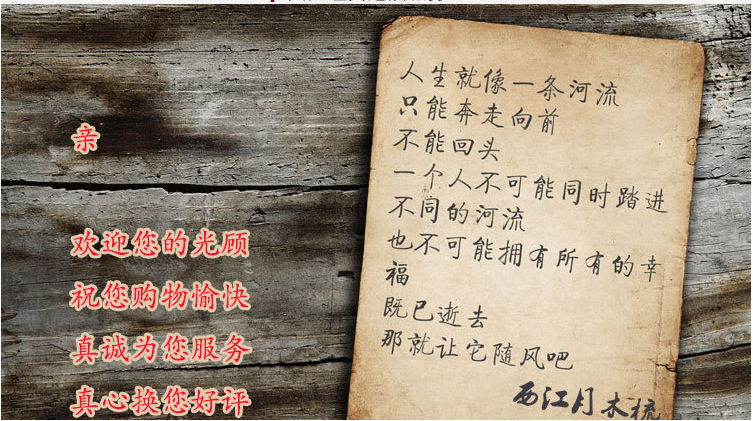 亲
欢迎您的光顾
祝您购物愉快
真诚为您服务
真心换您好评
人生就像一条河流
只能奔走向前
不能回头
一个人不可能同时踏进
不同的河流
也不可能拥有所有的幸
福
既已逝去
那就让它随风吧
西江月木梳